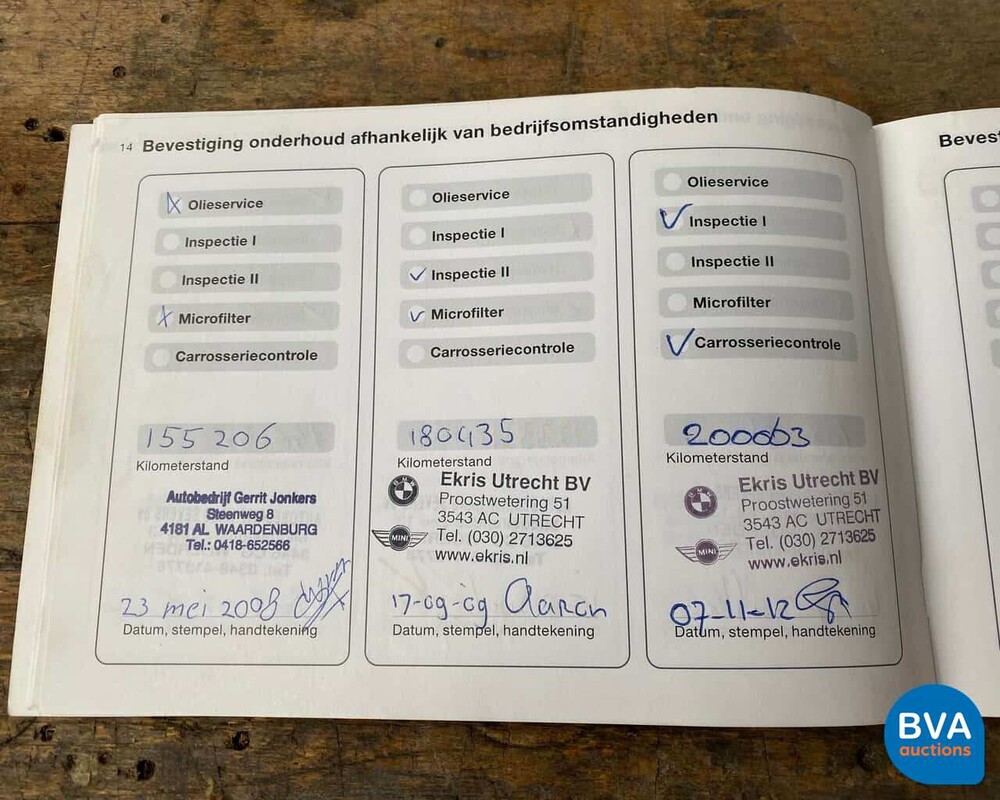 14 Bevestiging onderhoud afhankelijk van bedrijfsomstandigheden
Olieservice
Inspectie I
Inspectie II
Microfilter
Carrosseriecontrole
155 206
Kilometerstand
Autobedrijf Gerrit Jonkers
Steenweg 8
4181 AL WAARDENBURG
Tel.: 0418-652566
23 mei 2008
Datum, stempel, handtekening
Olieservice
Inspectie I
Inspectie II
Microfilter
Carrosseriecontrole
180435
Kilometerstand
Ekris Utrecht BV
Proostwetering 51
3543 AC UTRECHT
Tel. (030) 2713625
www.ekris.nl
BMW
MINI
17-09-09
Datum, stempel, handtekening
Olieservice
Inspectie I
Inspectie II
Microfilter
Carrosseriecontrole
200063
Kilometerstand
Ekris Utrecht BV
Proostwetering 51
3543 AC UTRECHT
Tel. (030) 2713625
www.ekris.nl
BMW
MINI
07-11-12
Datum, stempel, handtekening
Bevest
BVA
auctions